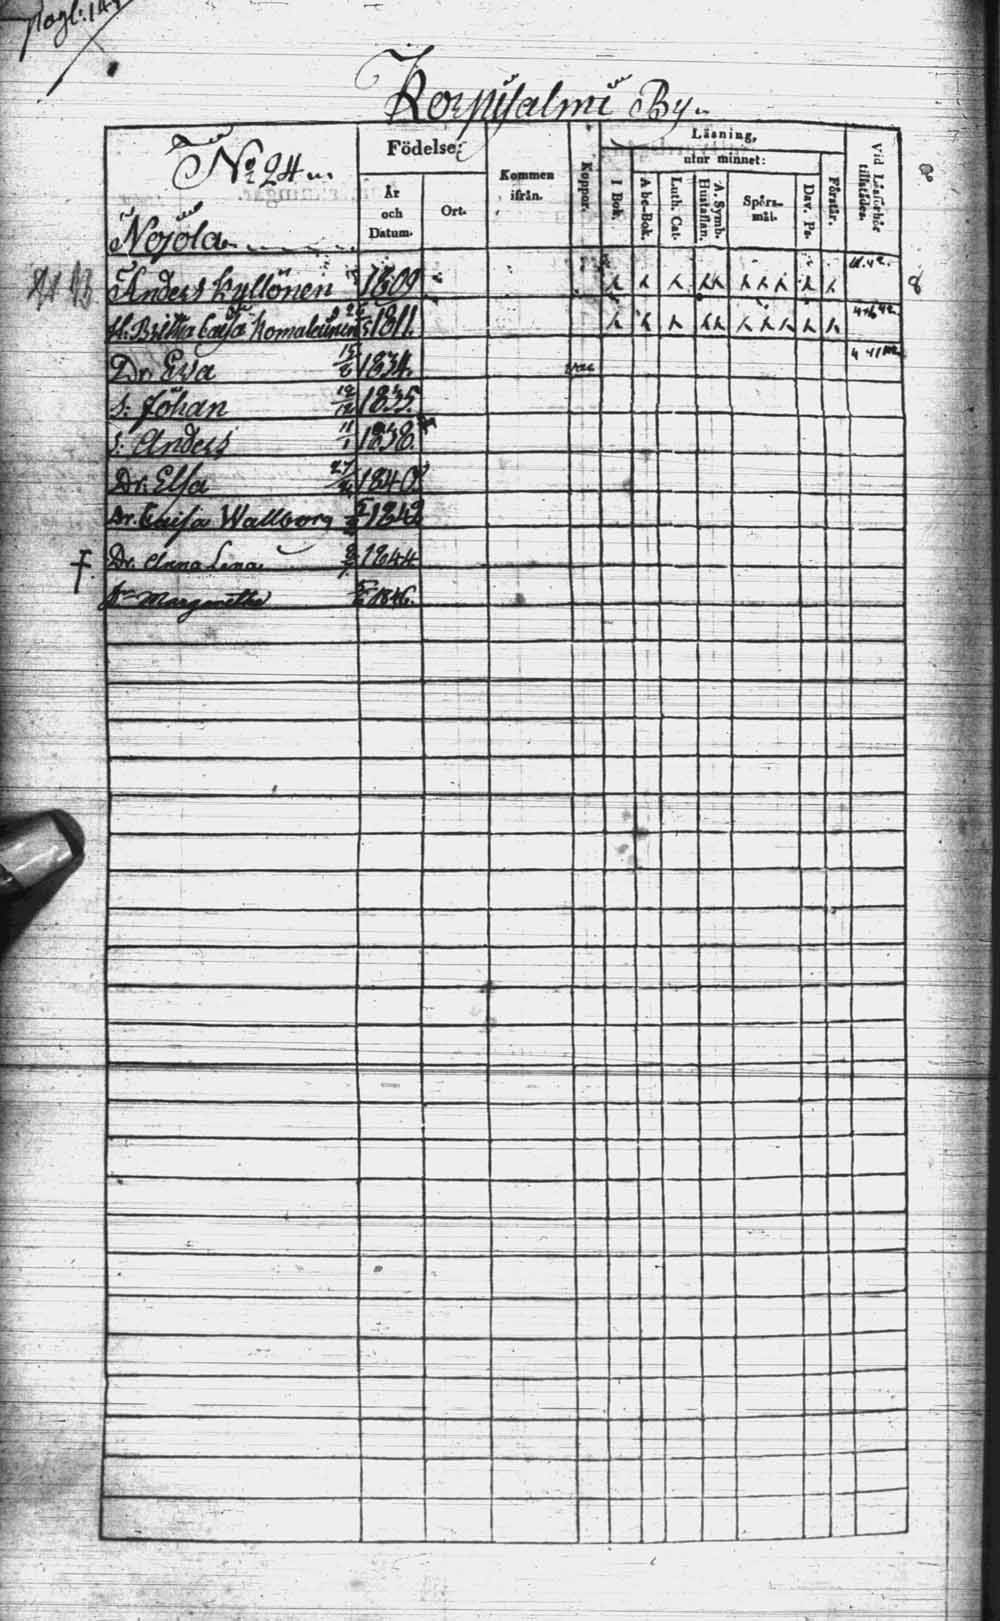 Korpijalmi By.
No 24
Nojola
Födelse:
År
och
Datum.
Ort.
Kommen
ifrån.
Koppor.
Läsning,
I Bok.
utur minnet:
Abc-Bok.
Luth. Cat.
A. Symb.
Hustaflan.
Spörs-
mål.
Dav. Ps.
Förstår.
Vid Läsförhör
tillstädes.
Anders Kyllönen 1809
H. Britha Caisa Komulainen 1811.
Dr. Eva 1834. vac
s. Johan 1835.
s. Anders 11/1 1838.
Dr. Elsa 1840.
Dr. Caisa Wallborg 1842
Dr. Anna Lena 1844
Dr Margaretha 1846.